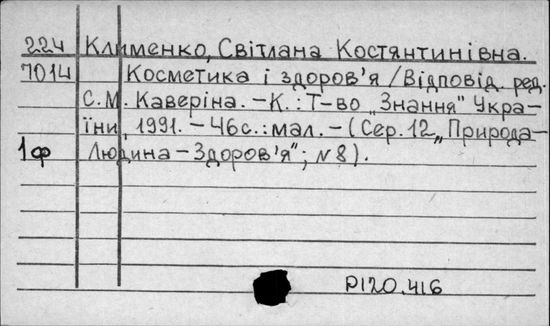 224 Клименко, Світлана Костянтинівна.
7014 Косметика і здоров'я / Відповід. ред.
С.М. Каверіна. – К. : Т-во „Знання" Укра-
їни, 1991. – 46с. : мал. – (Сер. 12 „Природа-
1ф Людина – Здоров'я"; №8).
Р120.416